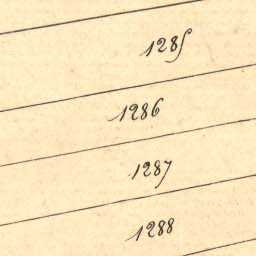 1285
1286
1287
1288